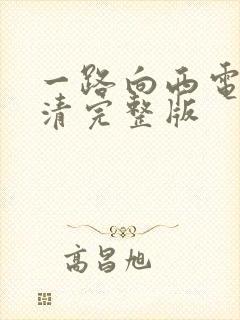 一路向西电
清完整版
高昌旭